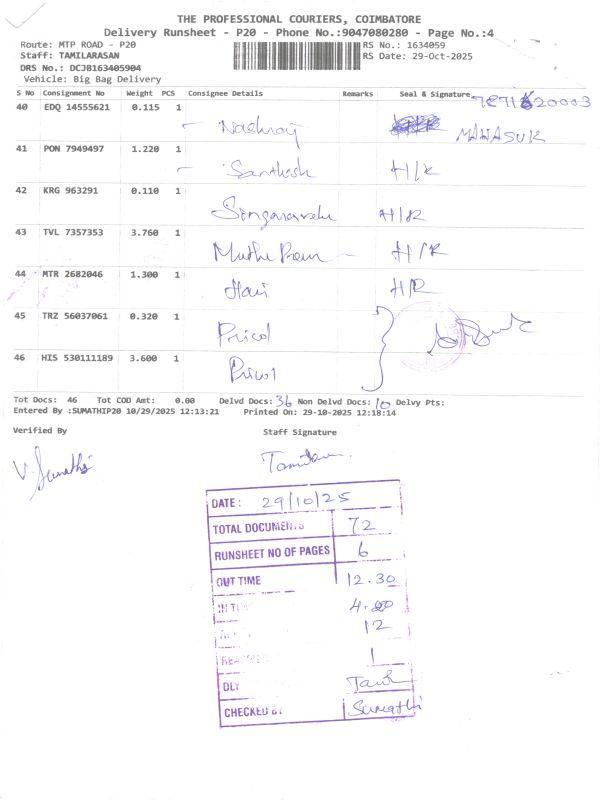 THE PROFESSIONAL COURIERS, COIMBATORE
Delivery Runsheet - P20 - Phone No.:9047080280 - Page No.:4
Route: MTP ROAD - P20 RS No.: 1634059
Staff: TAMILARASAN RS Date: 29-Oct-2025
DRS No.: DCJB163405904
Vehicle: Big Bag Delivery
S No Consignment No Weight PCS Consignee Details Remarks Seal & Signature
40 EDQ 14555621 0.115 1 MAHASUK
41 PON 7949497 1.220 1 Santhosh H/R
42 KRG 963291 0.110 1 Singaravelu H/R
43 TVL 7357353 3.760 1 Muthu Ram H/R
44 MTR 2682046 1.300 1 Hari H/R
45 TRZ 56037061 0.320 1 Pricol
46 HIS 530111189 3.600 1 Pricol
Tot Docs: 46 Tot COD Amt: 0.00 Delvd Docs: 36 Non Delvd Docs: 10 Delvy Pts:
Entered By :SUMATHIP20 10/29/2025 12:13:21 Printed On: 29-10-2025 12:18:14
Verified By Staff Signature
V. Sumathi
DATE: 29/10/25
TOTAL DOCUMENTS 72
RUNSHEET NO OF PAGES 6
OUT TIME 12.30
IN 4.00
12
1
DLY
CHECKED BY Sumathi